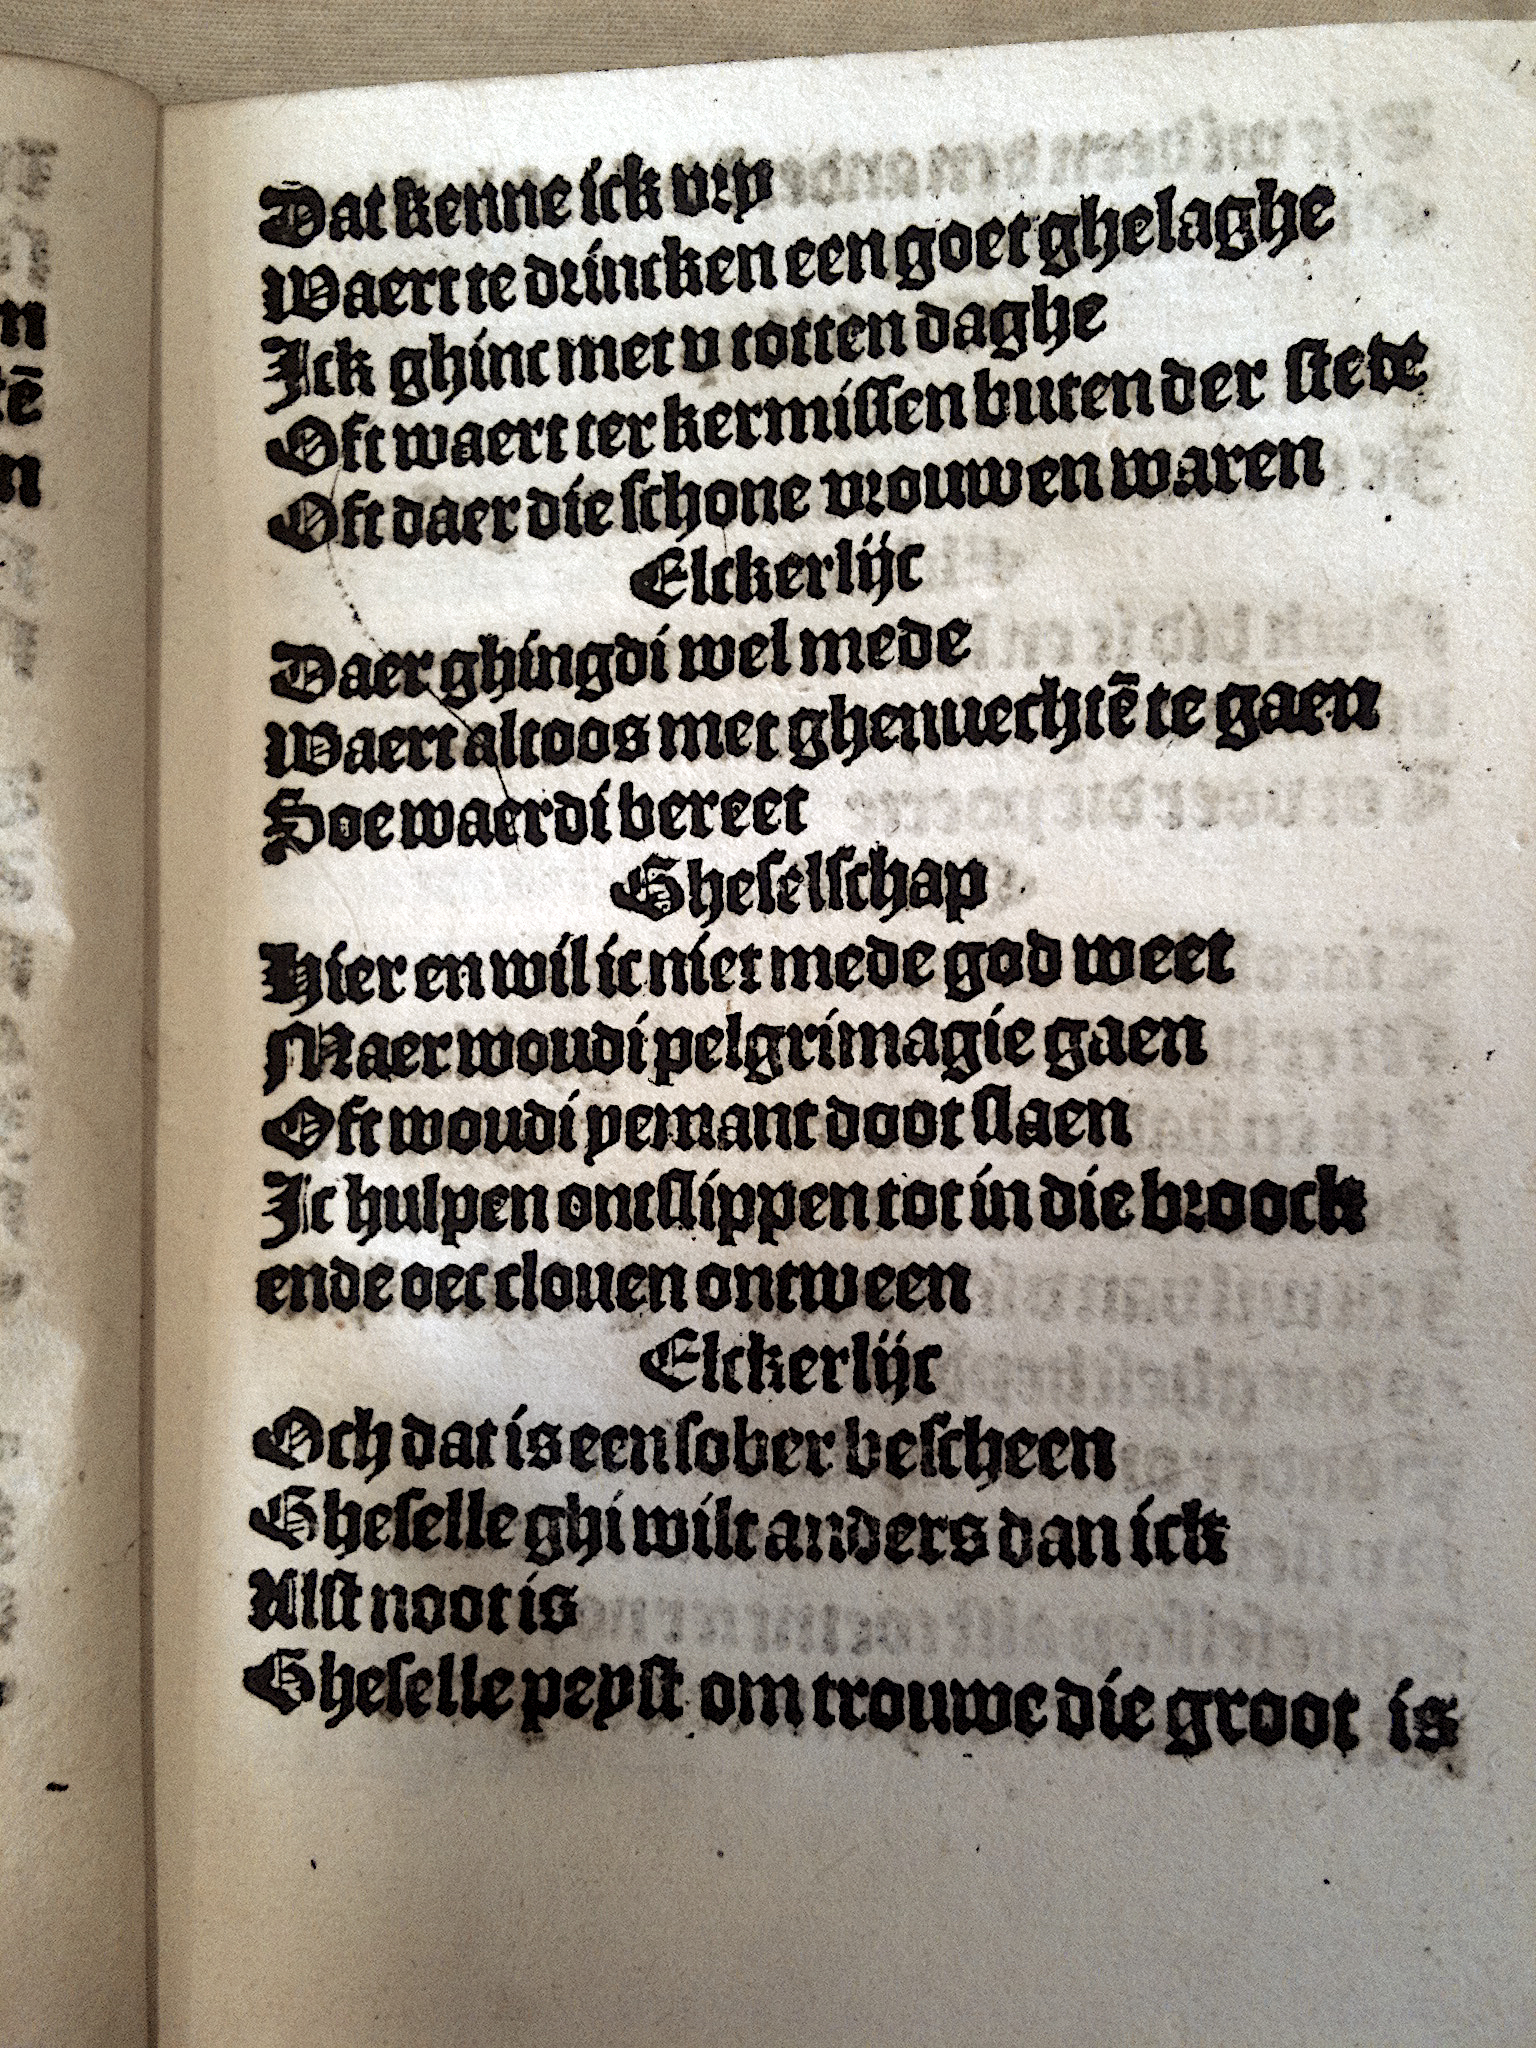 Dat kenne ick vrÿ
Waert te drincken een goet ghelaghe
Ick ghinc met v totten daghe
Oft waert ter kermiſſen buten der ſtede
Oft daer die ſchone vrouwen waren
Elckerlijc
Daer ghingdi wel mede
Waert altoos met ghenuechtē te gaen
Soe waerdi bereet
Gheſelſchap
Hier en wil ic niet mede god weet
Maer woudi pelgrimagie gaen
Oft woudi yemant doot ſlaen
Ic hulpen ontſlippen tot in die broock
ende oec clouen ontween
Elckerlijc
Och dat is een ſober beſcheen
Gheſelle ghi wilt anders dan ick
Alſt noot is
Gheſelle peyſt om trouwe die groot is